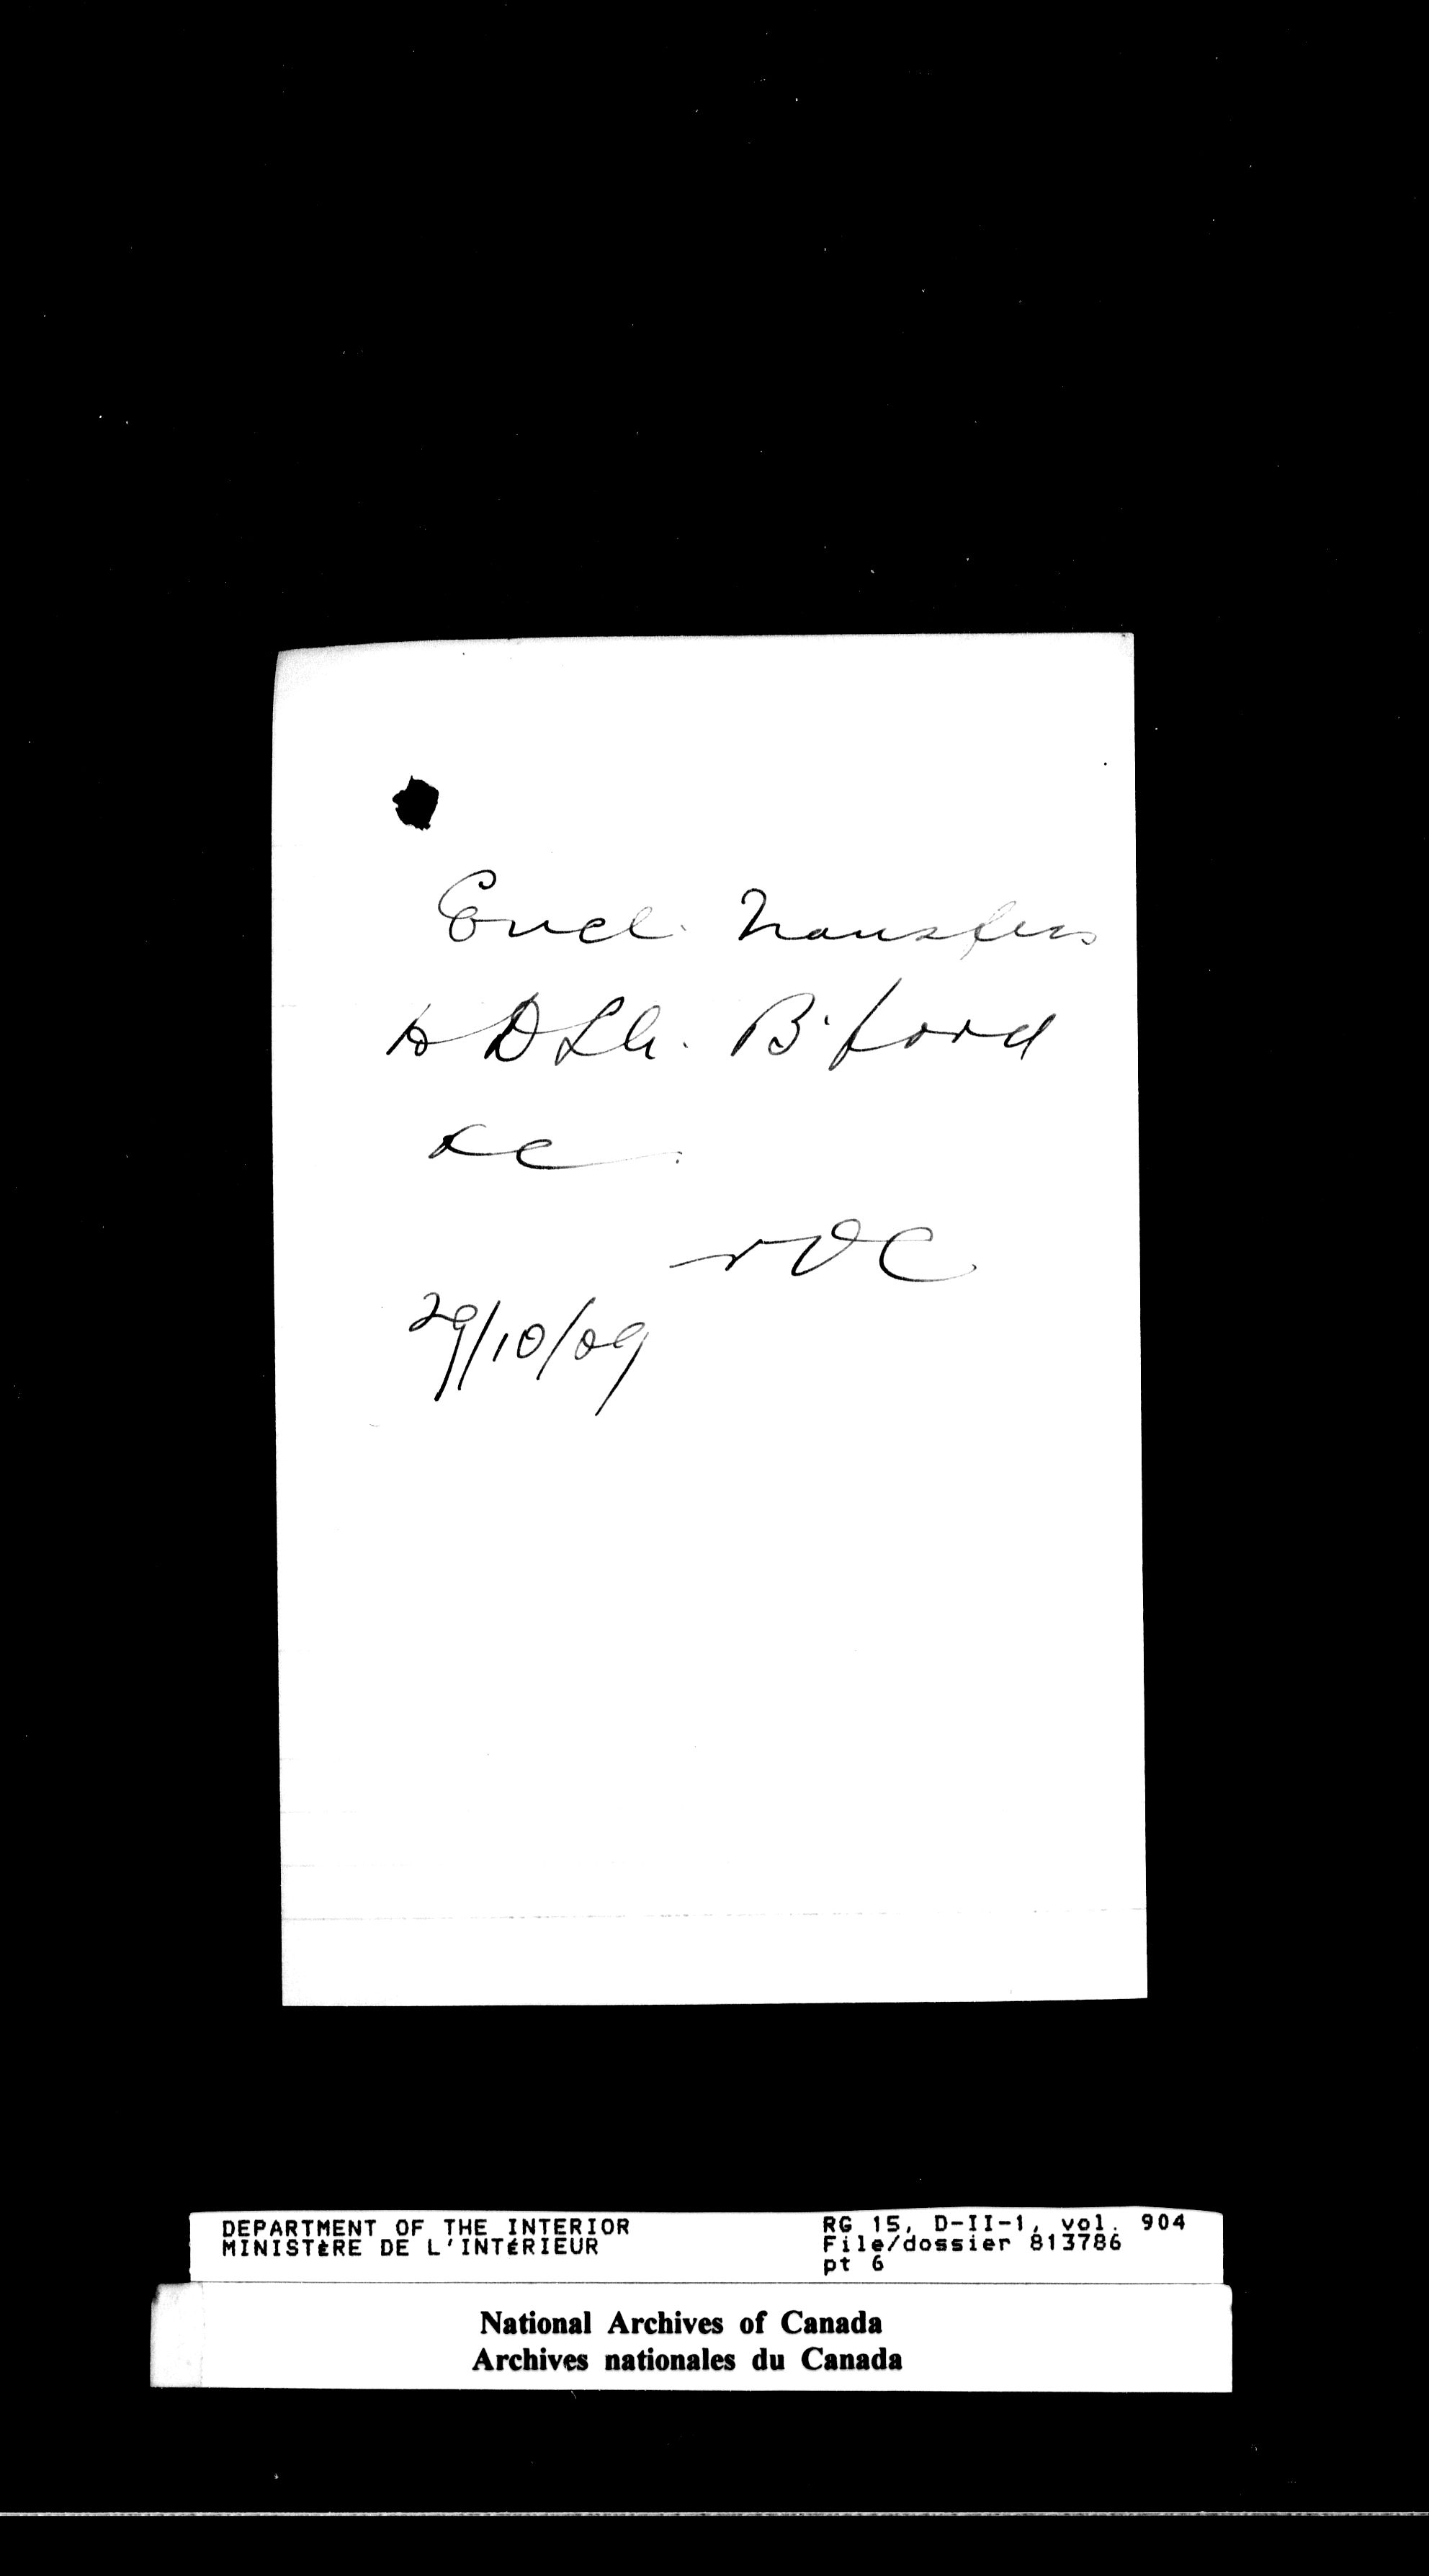 Encl. Transfers
to D L A. B'ford
&c.
29/10/09
DEPARTMENT OF THE INTERIOR
MINISTÈRE DE L'INTÉRIEUR
RG 15, D-II-1, vol. 904
File/dossier 813786
pt 6
National Archives of Canada
Archives nationales du Canada